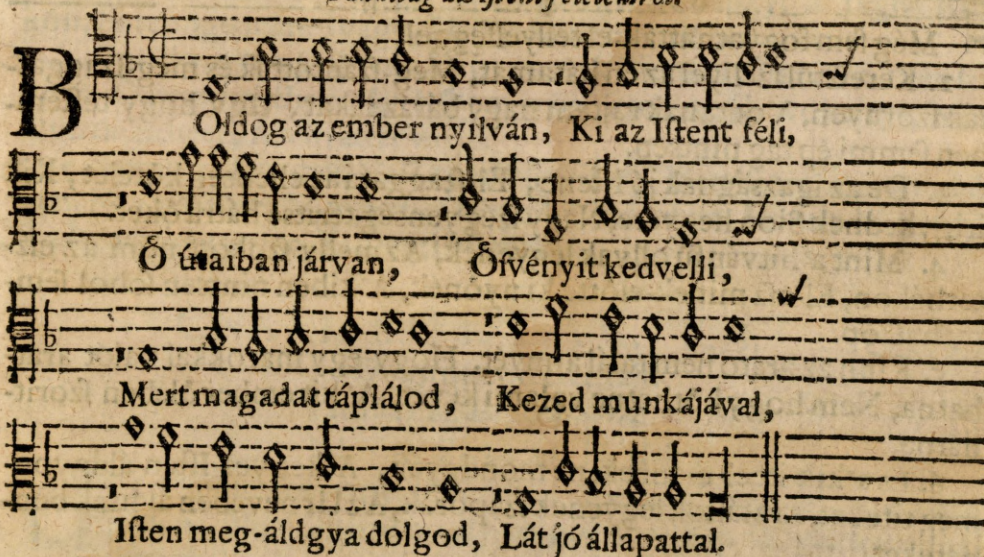 BOldog az ember nyilván, Ki az Iſtent féli,
Ő útaiban járvan, Őſvényit kedvelli,
Mert magadat táplálod, Kezed munkájával,
Iſten meg-áldgya dolgod, Lát jó állapattal.